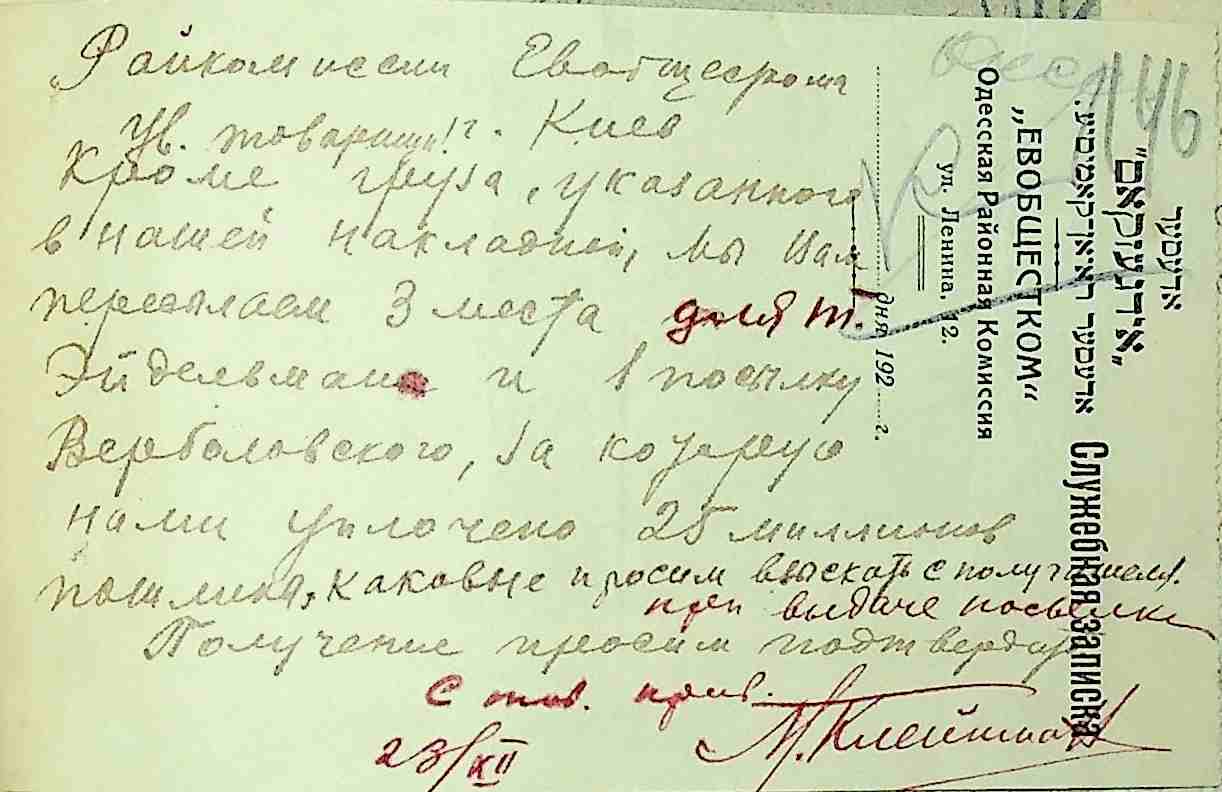 Райкомиссии Евобщесткома
г. Киев
Ув. товарищи!
Кроме груза, указанного
в нашей накладной, мы Вам
пересылаем 3 места для т.
Эйдельмана и 1 посылку
Вербаловского, за которую
нами уплочено 25 миллионов
пошлина, каковые просим взыскать с получателя
при выдаче посылки
Получение просим подтвердить
С тов. прив.
М. Клейнман
23/XII
146
אדעסער
„אידגעזקאם"
אדעסער ראיאןקאמיסיע.
„ЕВОБЩЕСТКОМ"
Одесская Районная Комиссия
ул. Ленина, 12.
дня 192 г.
Служебная записка